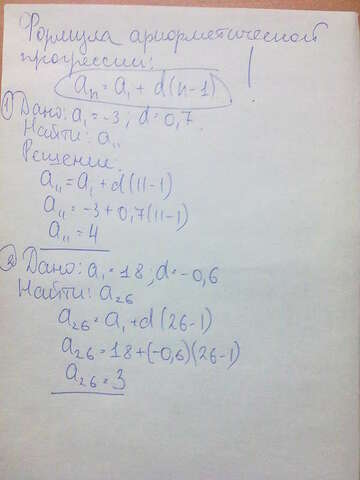 Формула арифметической
прогрессии:
aₙ = a₁ + d(n-1)
① Дано: a₁ = -3; d = 0,7
Найти: a₁₁
Решение:
a₁₁ = a₁ + d(11-1)
a₁₁ = -3 + 0,7(11-1)
a₁₁ = 4
② Дано: a₁ = 18; d = -0,6
Найти: a₂₆
a₂₆ = a₁ + d(26-1)
a₂₆ = 18 + (-0,6)(26-1)
a₂₆ = 3